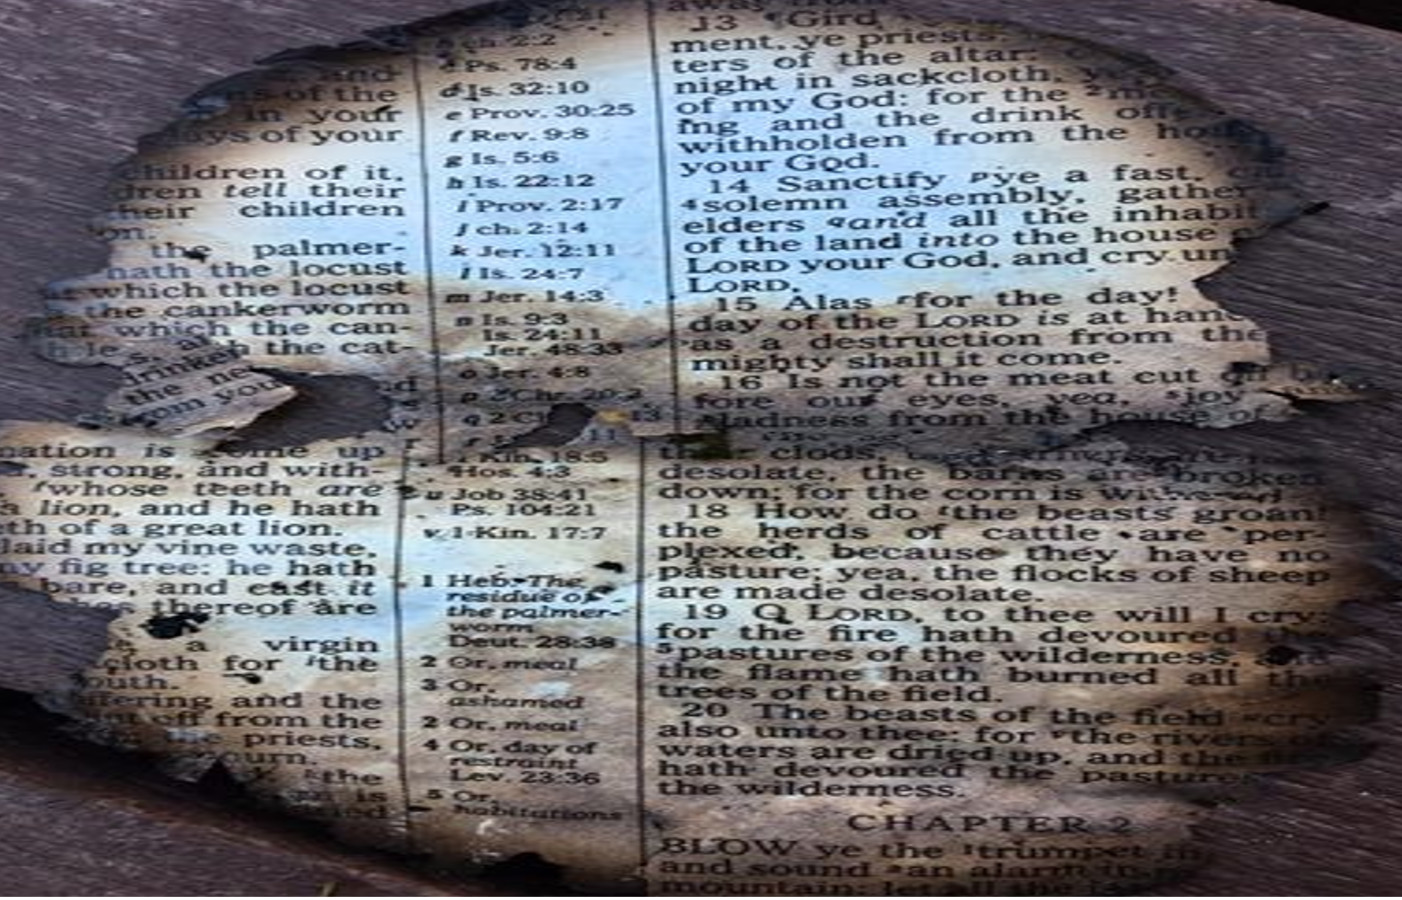 and
of the
in your
days of your
children of it.
dren tell their
heir children
on.
the palmer-
hath the locust
which the locust
the cankerworm
hat which the can-
the cat-
drinkers
the ne
om you
nation is come up
strong, and with-
whose teeth are
a lion, and he hath
th of a great lion.
laid my vine waste,
my fig tree: he hath
bare, and cast it
thereof are
a virgin
cloth for the
outh.
ffering and the
off from the
priests,
ourn.
the
is
ch. 2:2
Ps. 78:4
d Is. 32:10
e Prov. 30:25
f Rev. 9:8
g Is. 5:6
h Is. 22:12
i Prov. 2:17
j ch. 2:14
k Jer. 12:11
l Is. 24:7
m Jer. 14:3
n Is. 9:3
Is. 24:11
Jer. 48:33
o Jer. 4:8
p 2 Chr. 20:3
q 2 C 13
11
Kin. 18:5
Hos. 4:3
u Job 38:41
Ps. 104:21
v 1 Kin. 17:7
1 Heb. The
residue of
the palmer-
worm
Deut. 28:38
2 Or, meal
3 Or,
ashamed
2 Or, meal
4 Or, day of
restraint
Lev. 23:36
5 Or,
habitations
away from
13 Gird
ment, ye priests:
ters of the altar:
night in sackcloth,
of my God: for the
ing and the drink
withholden from the
your God.
14 Sanctify p ye a fast,
4 solemn assembly, gather
elders q and all the inhabit
of the land into the house
LORD your God, and cry un
LORD,
15 Alas r for the day!
day of the LORD is at hand
as a destruction from the
mighty shall it come.
16 Is not the meat cut off
fore our eyes, yea, s joy
gladness from the house of
clods,
desolate, the barns are broken
down; for the corn is
18 How do t the beasts groan!
the herds of cattle are per-
plexed, because they have no
pasture; yea, the flocks of sheep
are made desolate.
19 O LORD, to thee will I cry:
for the fire hath devoured the
5 pastures of the wilderness, and
the flame hath burned all the
trees of the field.
20 The beasts of the field u cry
also unto thee: for v the rivers
waters are dried up, and the
hath devoured the pastures
the wilderness.
CHAPTER 2
BLOW ye the trumpet in
and sound an alarm in
mountain: let all the